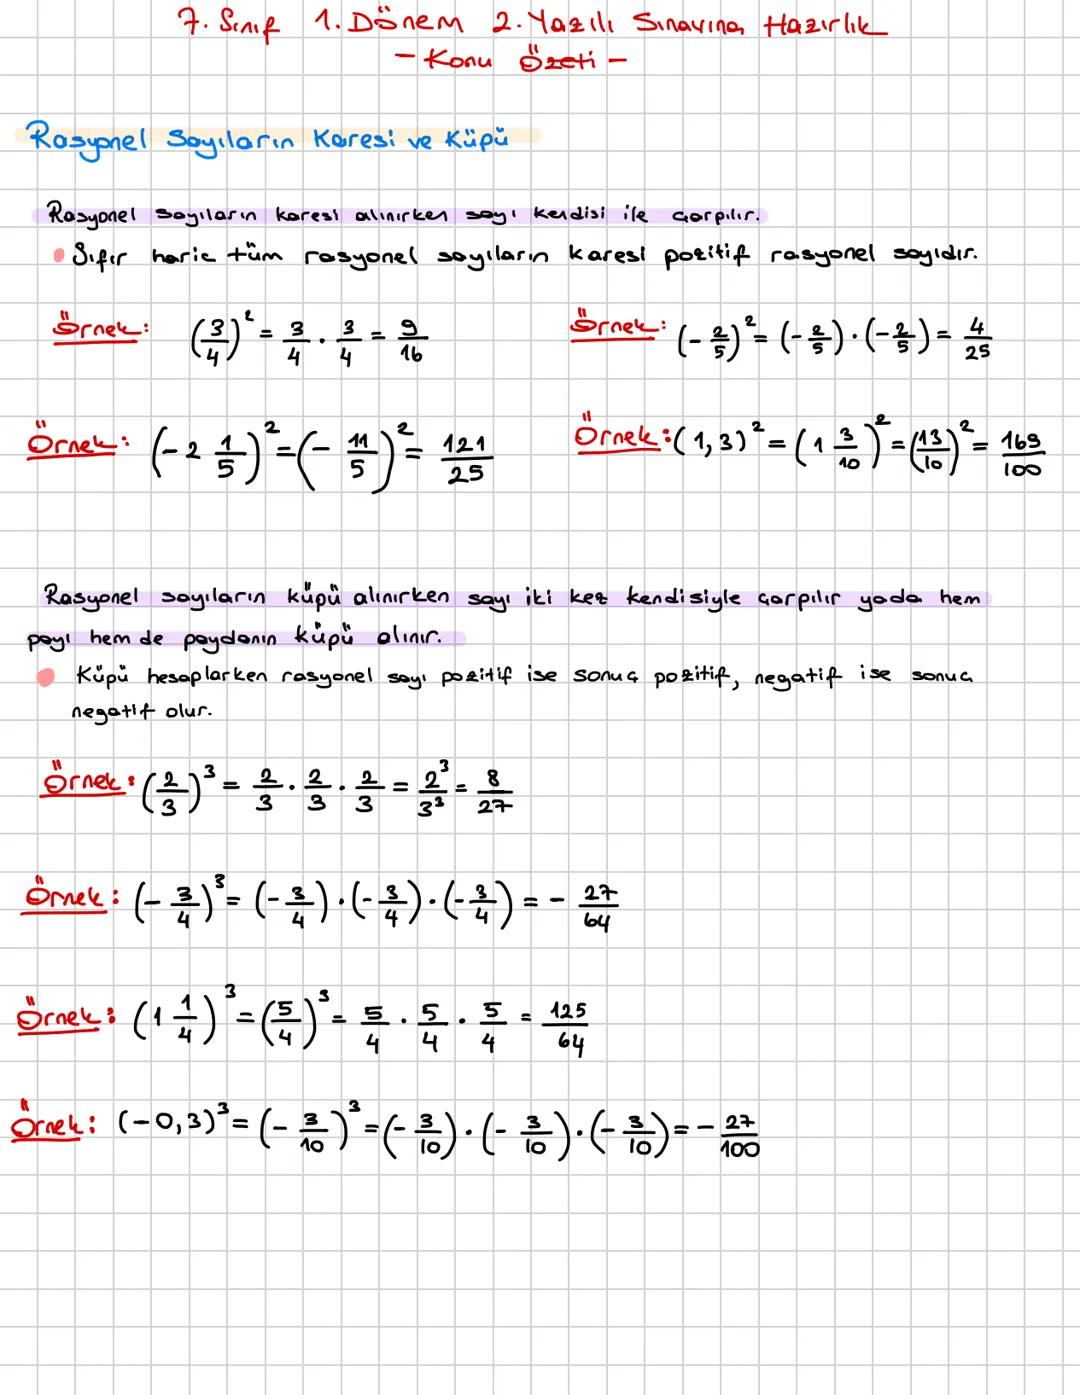 7. Sınıf 1. Dönem 2. Yazılı Sınavına Hazırlık
- Konu Özeti -
Rasyonel Sayıların Karesi ve Küpü
Rasyonel sayıların karesi alınırken sayı kendisi ile çarpılır.
• Sıfır hariç tüm rasyonel sayıların karesi pozitif rasyonel sayıdır.
Örnek: (3/4)² = 3/4 . 3/4 = 9/16
Örnek: (- 2/5)² = (- 2/5) . (- 2/5) = 4/25
Örnek: (-2 1/5)² = (- 11/5)² = 121/25
Örnek: (1,3)² = (1 3/10)² = (13/10)² = 169/100
Rasyonel sayıların küpü alınırken sayı iki kez kendisiyle çarpılır yada hem
payı hem de paydanın küpü alınır.
• Küpü hesaplarken rasyonel sayı pozitif ise sonuç pozitif, negatif ise sonuç
negatif olur.
Örnek: (2/3)³ = 2/3 . 2/3 . 2/3 = 2³/3³ = 8/27
Örnek: (- 3/4)³ = (- 3/4) . (- 3/4) . (- 3/4) = - 27/64
Örnek: (1 1/4)³ = (5/4)³ = 5/4 . 5/4 . 5/4 = 125/64
Örnek: (-0,3)³ = (- 3/10)³ = (- 3/10) . (- 3/10) . (- 3/10) = - 27/100